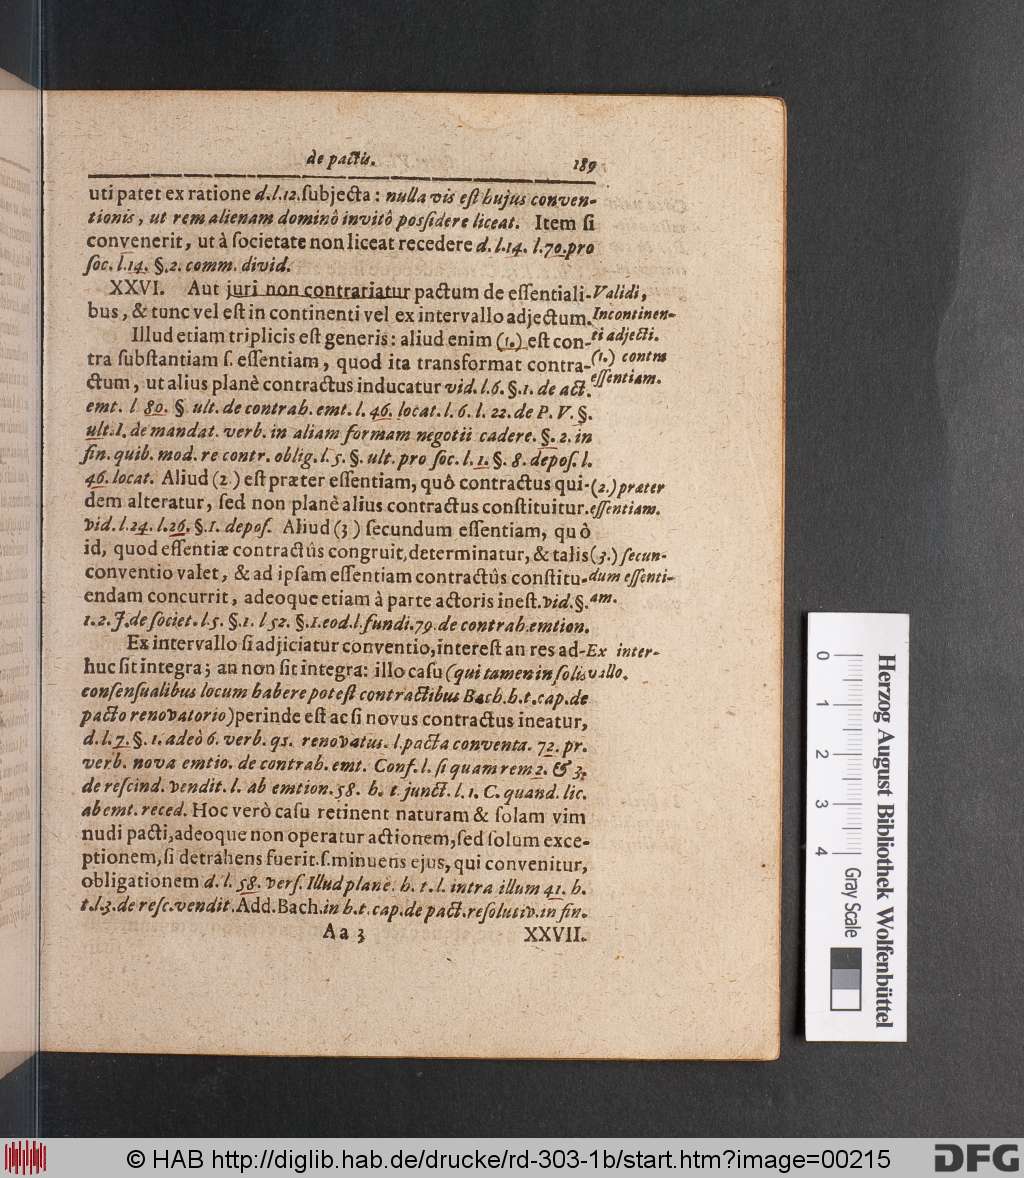 de pactis. 189
uti patet ex ratione d. l. 12. subjecta: nulla vis est hujus conven-
tionis, ut rem alienam dominô invitô possidere liceat. Item si
convenerit, ut à societate non liceat recedere d. l. 14. l. 70. pro
soc. l. 14. §. 2. comm. divid.
XXVI. Aut juri non contrariatur pactum de essentiali-
bus, & tunc vel est in continenti vel ex intervallo adjectum.
Illud etiam triplicis est generis: aliud enim (1.) est con-
tra substantiam s. essentiam, quod ita transformat contra-
ctum, ut alius planè contractus inducatur vid. l. 6. §. 1. de act.
emt. l 80. § ult. de contrah. emt. l. 46. locat. l. 6. l. 22. de P. V. §.
ult. l. de mandat. verb. in aliam formam negotii cadere. §. 2. in
fin. quib. mod. re contr. oblig. l. 5. §. ult. pro soc. l. 1. §. 8. depos. l.
46. locat. Aliud (2.) est præter essentiam, quô contractus qui-
dem alteratur, sed non planè alius contractus constituitur.
vid. l. 24. l. 26. §. 1. depos. Aliud (3) secundum essentiam, quò
id, quod essentiæ contractûs congruit, determinatur, & talis
conventio valet, & ad ipsam essentiam contractûs constitu-
endam concurrit, adeoque etiam à parte actoris inest. vid. §.
1. 2. J. de societ. l. 5. §. 1. l 52. §. 1. eod. l. fundi. 79. de contrah. emtion.
Ex intervallo si adjiciatur conventio, interest an res ad-
huc sit integra; an non sit integra: illo casu (qui tamen in solis
consensualibus locum habere potest contractibus Bach. h. t. cap. de
pacto renovatorio) perinde est ac si novus contractus ineatur,
d. l. 7. §. 1. adeò 6. verb. qs. renovatus. l. pacta conventa. 72. pr.
verb. nova emtio. de contrah. emt. Conf. l. si quam rem 2. & 3.
de rescind. vendit. l. ab emtion. 58. h. t. junct. l. 1. C. quand. lic.
ab emt. reced. Hoc verò casu retinent naturam & solam vim
nudi pacti, adeoque non operatur actionem, sed solum exce-
ptionem, si detrahens fuerit. s. minuens ejus, qui convenitur,
obligationem d. l. 58. vers. Illud planè. h. t. l. intra illum 41. h.
t. l. 3. de resc. vendit. Add. Bach. in h. t. cap. de pact. resolutiv. in fin.
Aa 3 XXVII.
Validi,
Incontinen-
ti adjecti.
(1.) contra
essentiam.
(2.) præter
essentiam.
(3.) secun-
dum essenti-
am.
Ex inter-
vallo.
0 1 2 3 4 Gray Scale
Herzog August Bibliothek Wolfenbüttel
© HAB http://diglib.hab.de/drucke/rd-303-1b/start.htm?image=00215
DFG